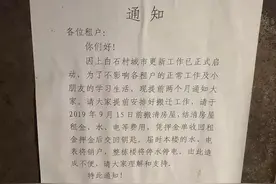 通知
各位租户:
你们好!
因上白石村城市更新工作已正式启
动,为了不影响各租户的正常工作及小
朋友的学习生活,现提前两个月通知大
家。请大家提前安排好搬迁工作,请于
2019年9月15日前搬清房屋,结清房屋
租金、水、电等费用,凭押金单收回租
金押金后交回钥匙。届时本楼的水、电
表将销户,整栋楼将停水停电。由此造
成不便,请大家理解和支持。
特此通知!